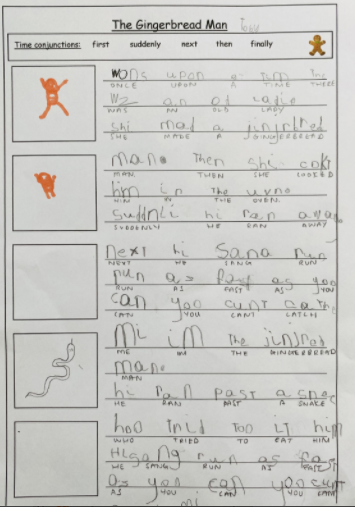 The Gingerbread Man
Time conjunctions: first suddenly next then finally
wons upon a tim
ONCE UPON A TIME THERE
wz an od ladie
WAS AN OLD LADY
shi mad a jinjrbred
SHE MADE A GINGERBREAD
man. Then shi cokt
MAN. THEN SHE COOKED
him in the uvne
HIM IN THE OVEN.
suddnli hi ran
SUDDENLY HE RAN AWAY
next hi sang run
NEXT HE SANG RUN
run as fast as you
RUN AS FAST AS YOU
can you cunt
CAN YOU CANT CATCH
mi im the
ME IM THE GINGERBREAD
man.
MAN
hi ran past a
HE RAN PAST A SNAKE
hoo too it him
WHO TRIED TO EAT HIM
Hi sang run as fas
HE SANG RUN AS FAST
as you can you cunt
AS YOU CAN YOU CANT